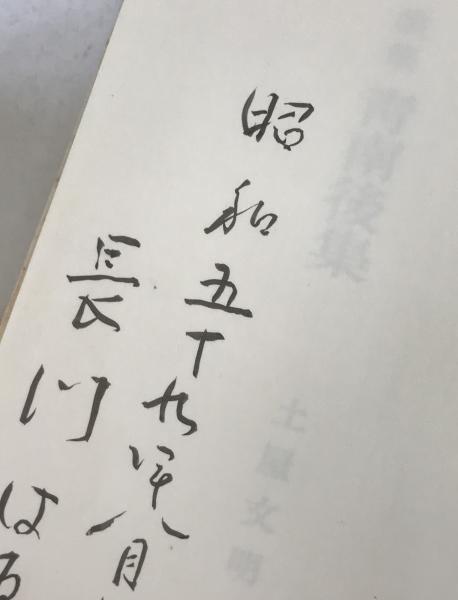 昭和五十九年八月
長川はる
後集
土屋文明